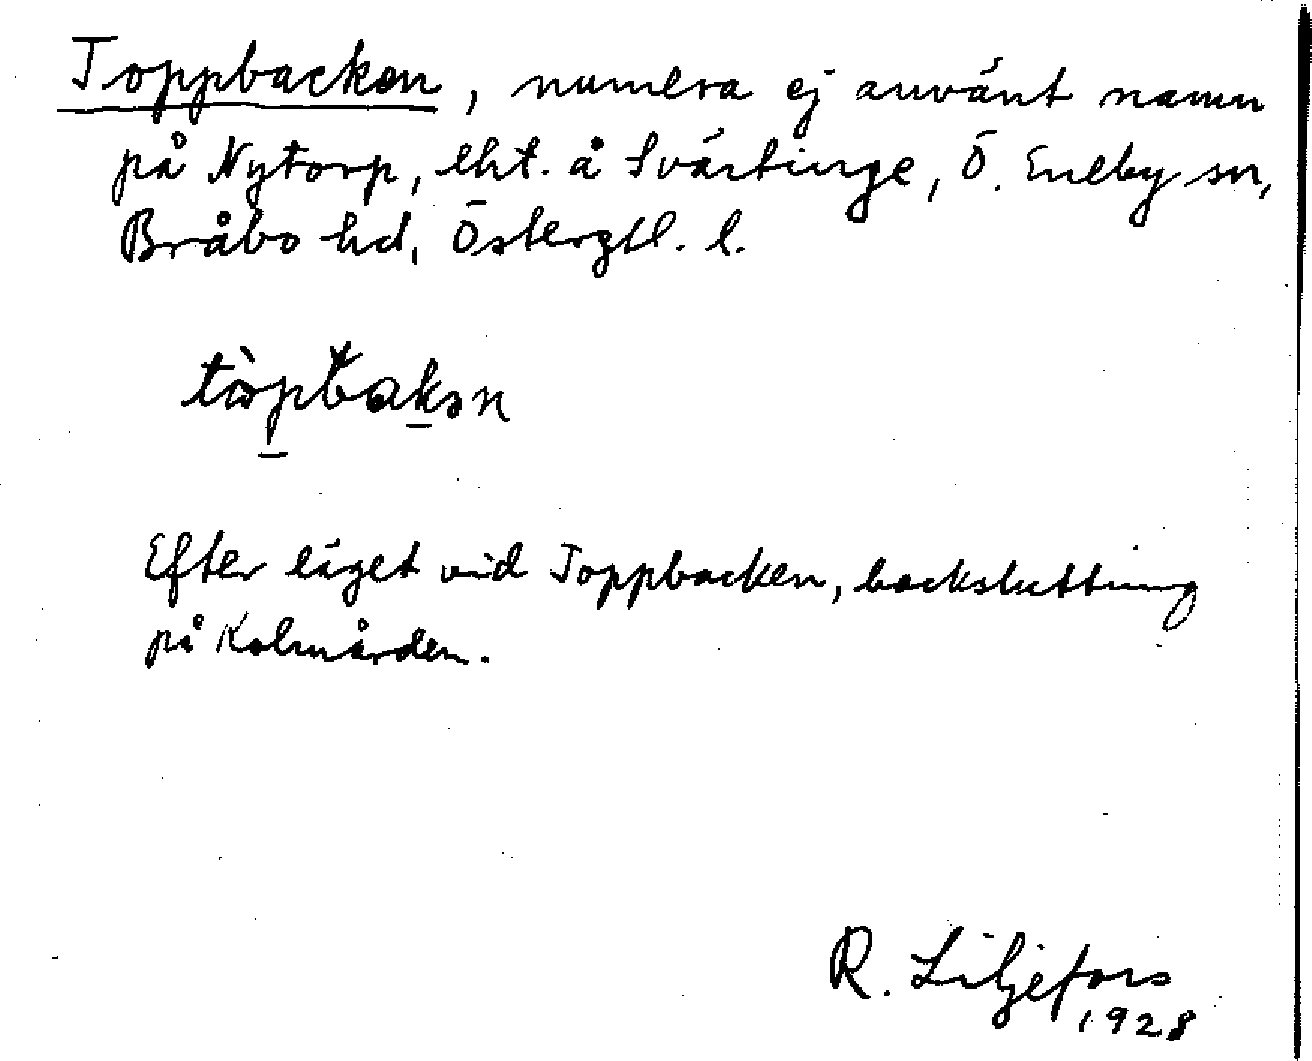 Toppbacken, numera ej använt namn
på Nytorp, lht. å Svärtinge, Ö. Eneby sn,
Bråbo hd, Östergtl. l.
Efter läget vid Toppbacken, backsluttning
på Kolmården.
R. Liljefors
1928